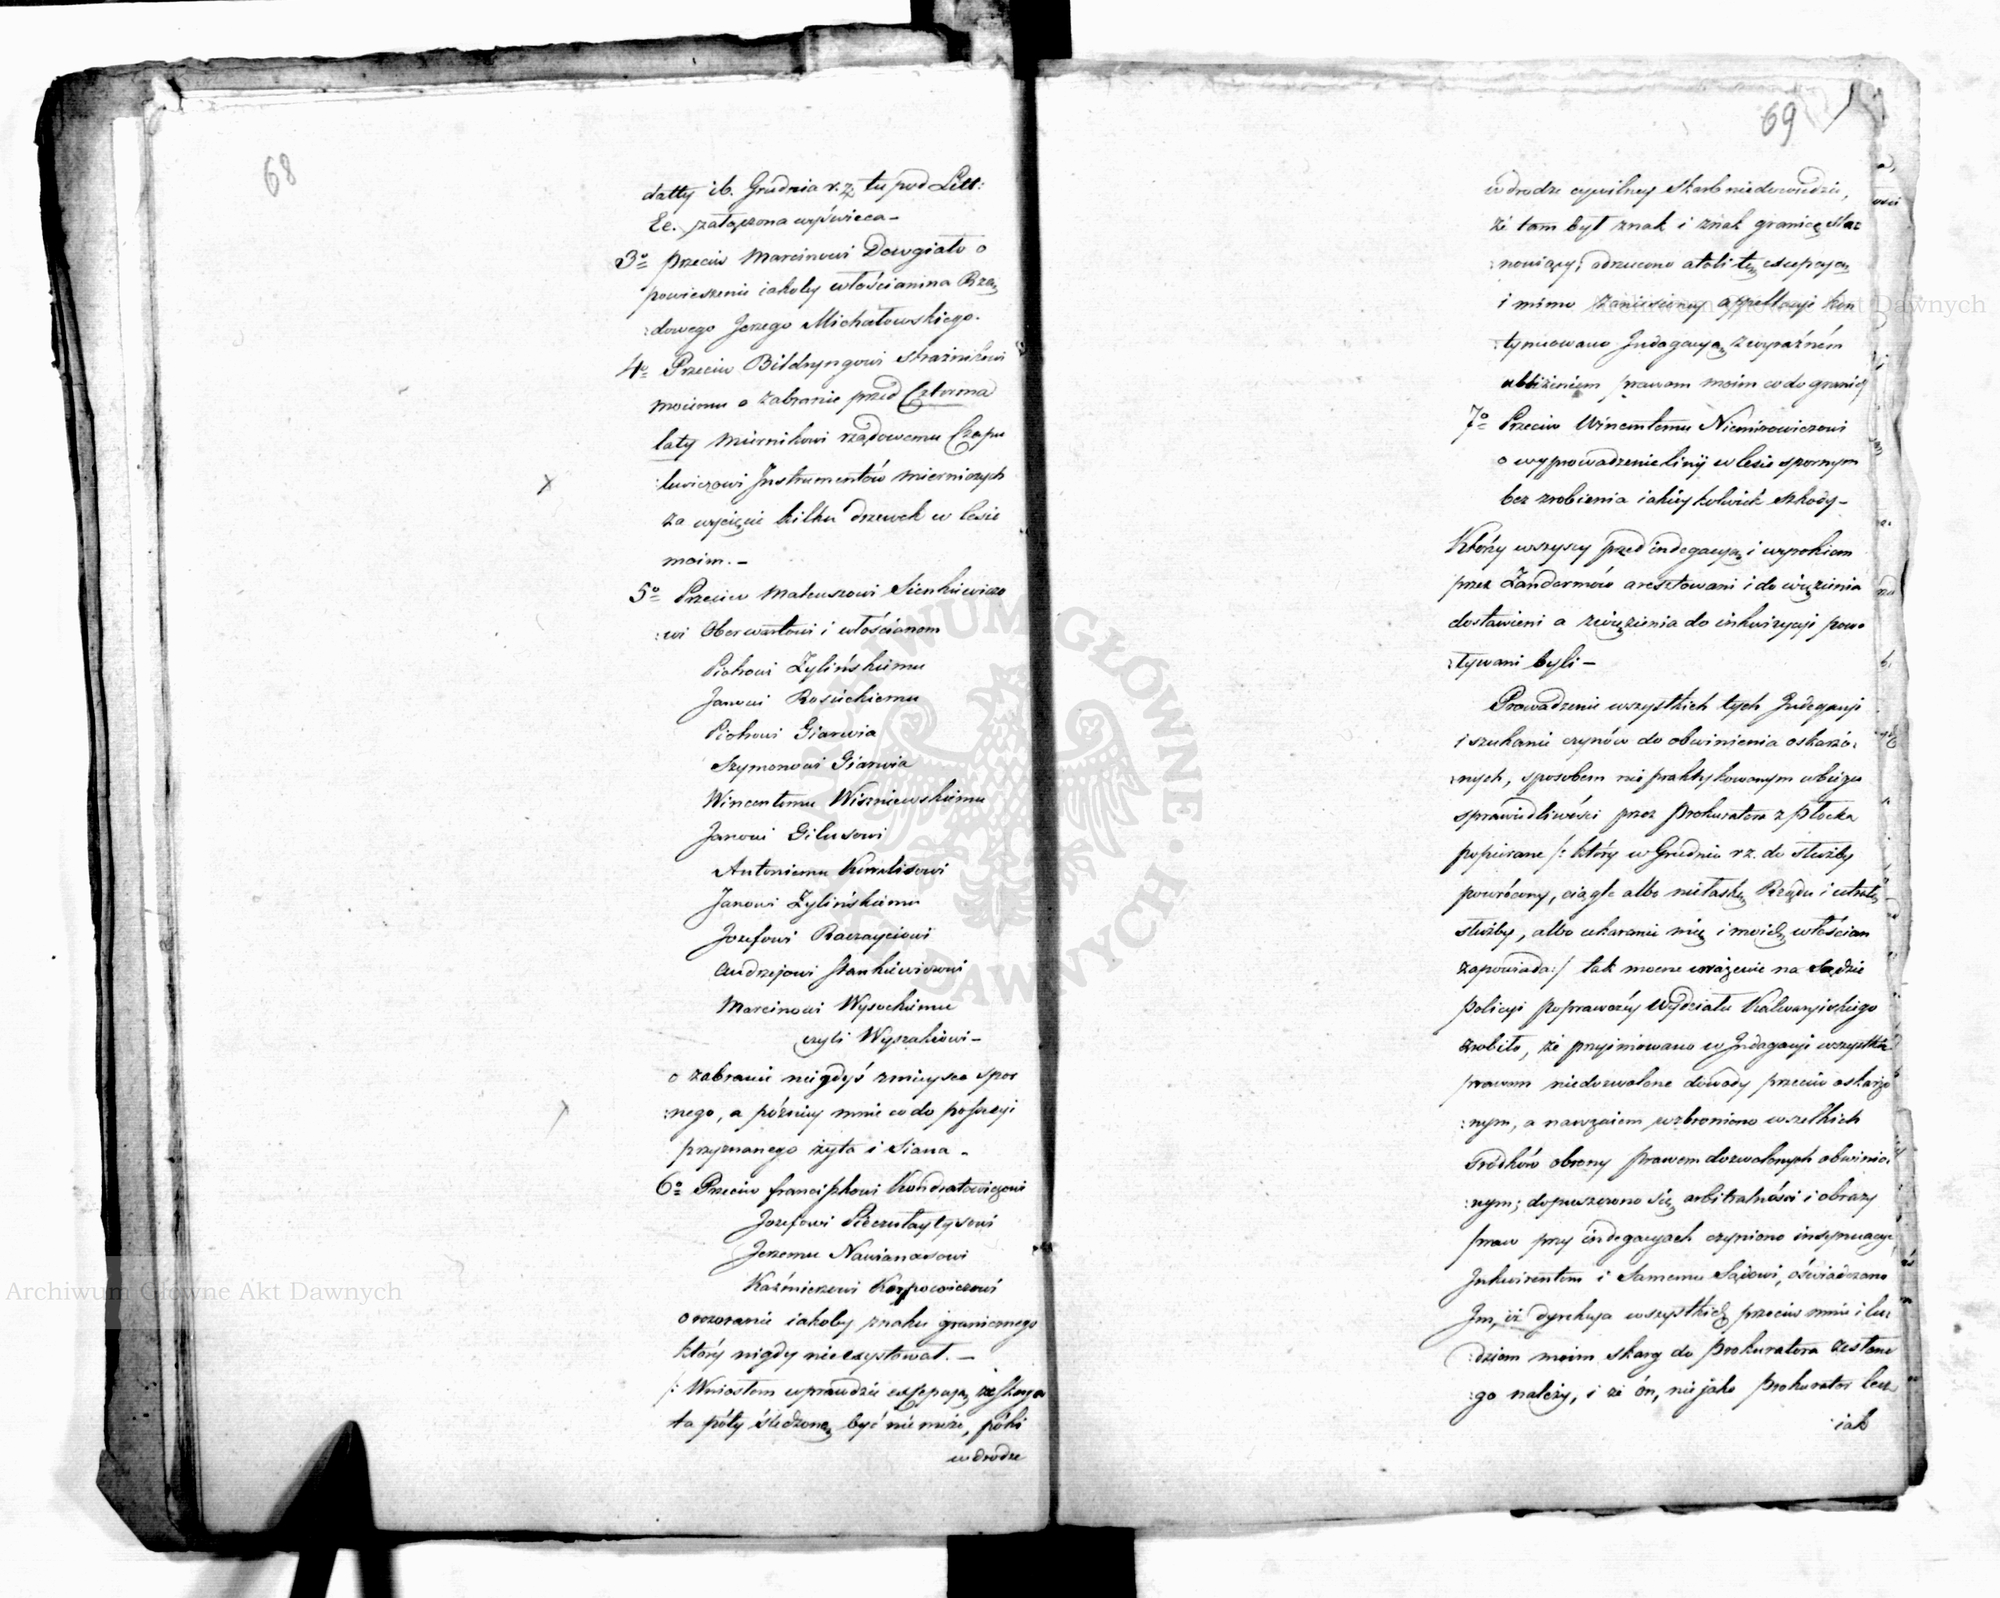 68
datty 16. Grudnia r.z. tu pod Litt:
Ee. załączona wyświeca—
3º Przeciw Marcinowi Dowgiało o
powieszenie iakoby włościanina Rzą
:dowego Jerzego Michałowskiego.
4º Przeciw Bildzyngowi strażnikowi
moiemu o zabranie przed Czterma
laty Miernikowi rządowemu Czapu
:lewiczowi Instrumentów mierniczych
za wycięcie kilku drzewek w lesie
moim.—
5º Przeciw Mateuszowi Sienkiewiczo
:wi Oberwartowi i włościanom
Piotrowi Żylińskiemu
Janowi Rosickiemu
Piotrowi Giarwia
Szymonowi Giarwia
Wincentemu Wiszniewskiemu
Janowi Gilusowi
Antoniemu Kiralisowi
Janowi Żylińskiemu
Jozefowi Raczayciowi
Andrzejowi Stankiewiczowi
Marcinowi Wysockiemu
czyli Wyszakiowi—
o zabranie niegdyś z mieysca spor
:nego, a pózniey mnie co do possessyi
przyznanego żyta i siana—
6º Przeciw Franciszkowi Kondratowiczowi
Jozefowi Pieczulaytysowi
Jerzemu Nawianasowi
Kaźmierzowi Karpowiczowi
o rozoranie iakoby znaku granicznego
który nigdy nie exystował.—
/: Wniosłem wprawdzie excepcyą, że skarga
ta póty śledzoną być nie może, póki
w drodze
69
w drodze cywilney Skarb niedowiedzie,
że tam był znak i znak granicę sta:
:nowiący; odrzucono atoli tę excepcyą
i mimo zaniesioney appellacyi kon
:tynuowano Indagacyą z wyraźném
ubliżeniem prawom moim co do granic/
7º Przeciw Wincentemu Niemirowiczowi
o wyprowadzenie linij w lesie spornym
bez zrobienia iakiey kolwiek szkody—
Którzy wszyscy przed indagacyą i wyrokiem
przez Żandarmów aresztowani i do więzienia
dostawieni a z więzienia do inkwizycyi powo
:ływani byli—
Prowadzenie wszystkich tych Indagacyi
i szukanie czynów do obwinienia oskarżo:
:nych, sposobem nie praktykowanym w biegu
sprawiedliwości przez Prokuratora z Płocka
popierane /: który w Grudniu r z. do służby
powrócony, ciągle albo niełaskę Rządu i utratę
służby, albo ukaranie mię i moich włościan
zapowiada:/ tak mocne wrażenie na Sądzie
Policyi Poprawczey Wydziału Kalwaryiskiego
zrobiło, że przyimowano w Indagacyi wszystkie
prawem niedozwolone dowody przeciw oskarżo
:nym, a nawzaiem wzbroniono wszelkich
srodków obrony prawem dozwolonych obwinio:
:nym; dopuszczono się arbitralności i obrazy
praw przy indagacyach czyniono insynuacye
Inkwirentom i Samemu Sądowi, oświadczono
Im, iż dyrekcya wszystkich przeciw mnie i lu:
:dziom moim skarg do Prokuratora zesłane
:go należy, i że ón, nie jako Prokurator lecz
iak
Archiwum Główne Akt Dawnych
Archiwum Główne Akt Dawnych
ARCHIWUM GŁÓWNE AKT DAWNYCH